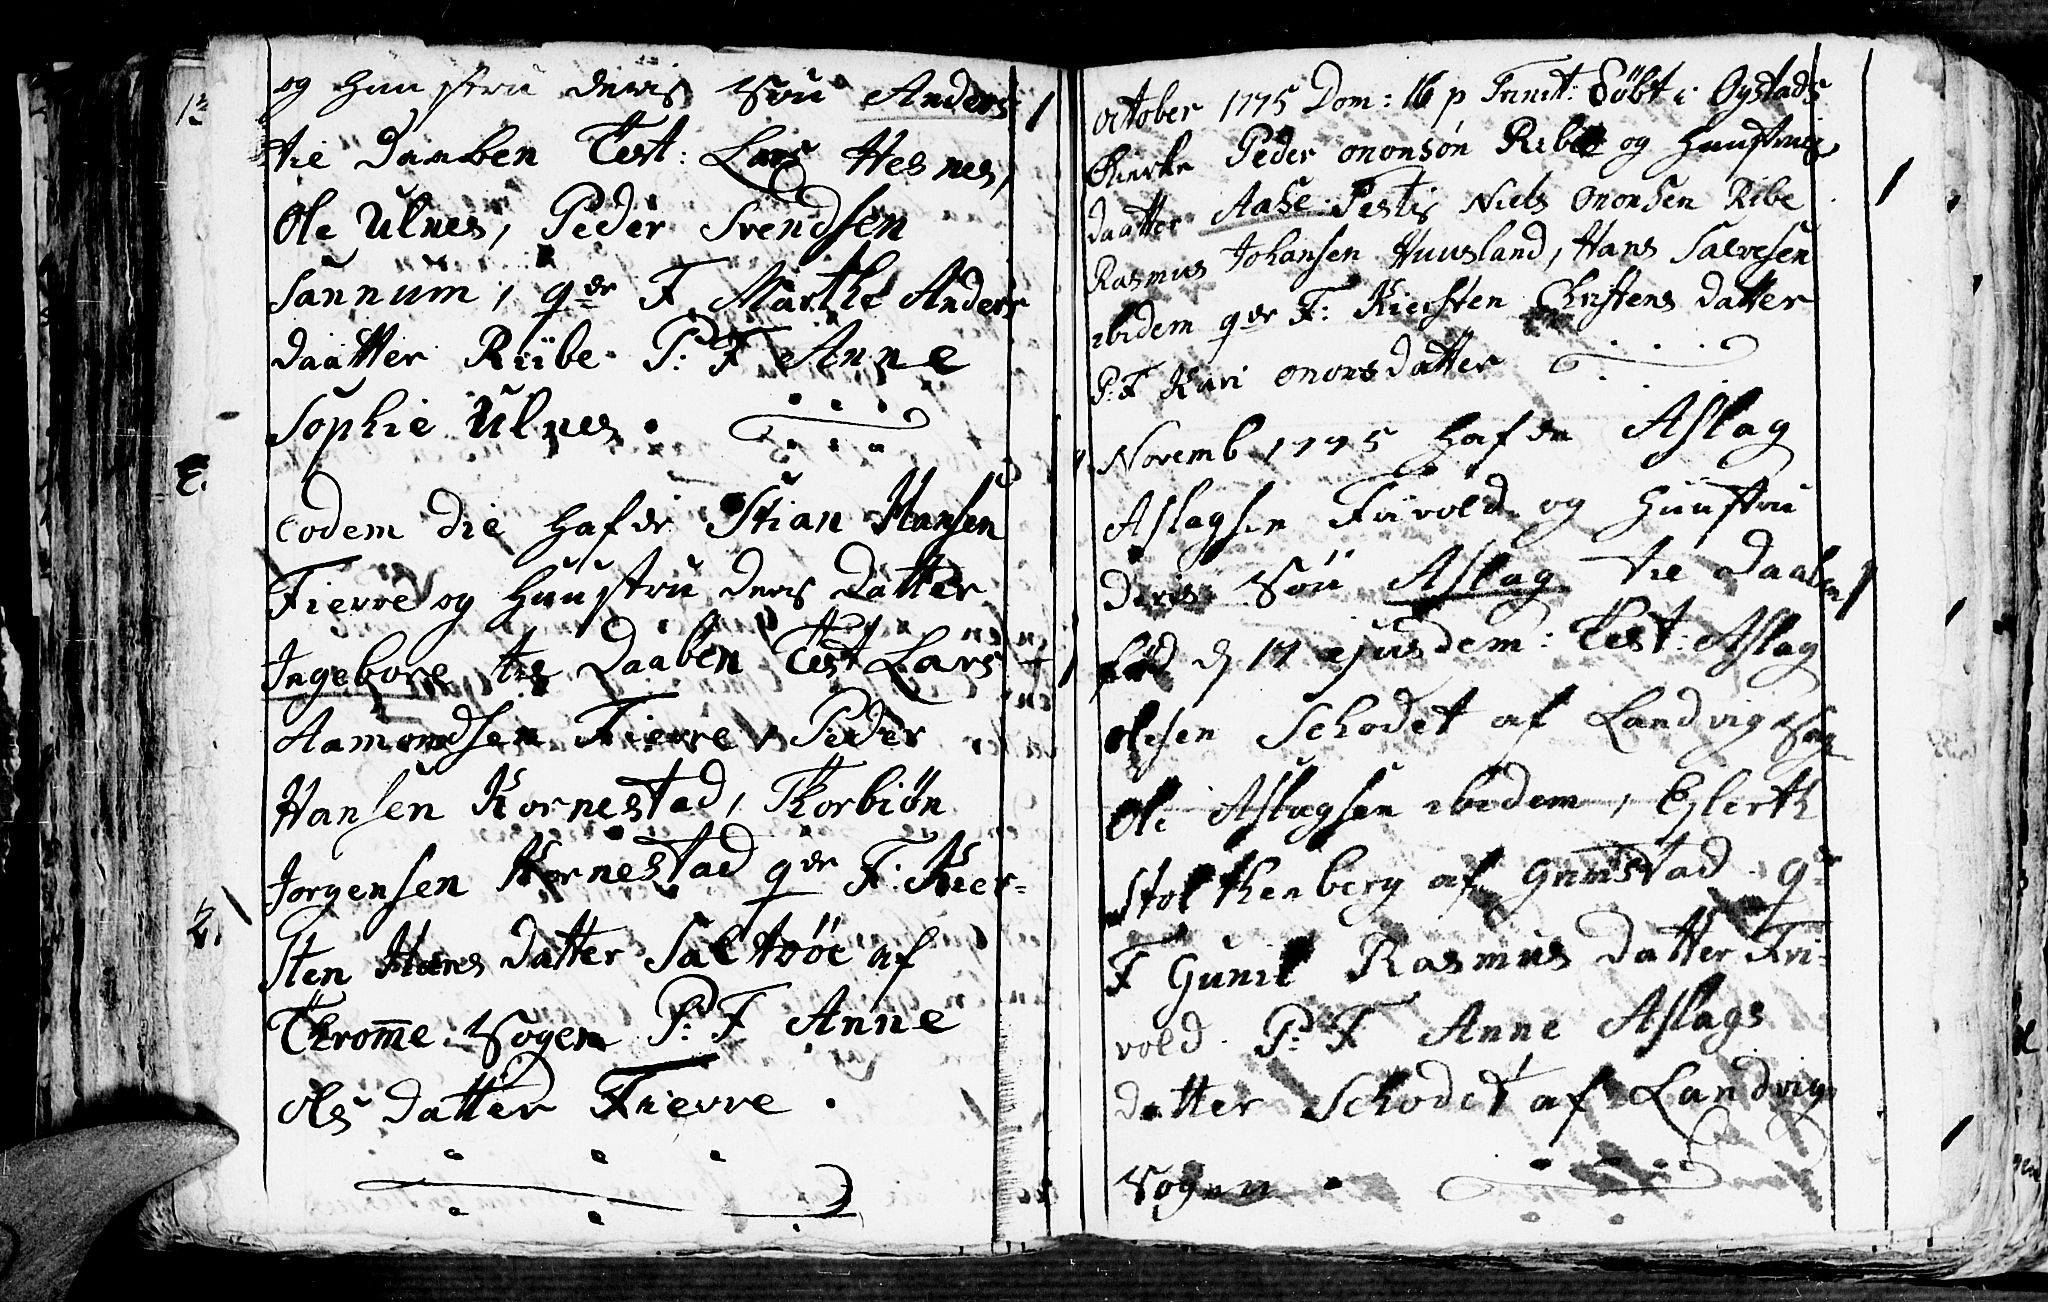 og Huustru deris Søn Anders
til Daaben Test: Lars Hesnes,
Ole Ulnes, Peder Svendsen
Sannum, qer F Marthe Anders
daatter Riibe P: F Anne
Sophie Ulnes.
Eodem die hafde Stian Hansen
Fierre og Huustru deris datter
Ingebore til Daaben Test Lars
Aamondsen Fierre, Peder
Hansen Kornestad, Thorbiøn
Jorgensen Kornestad qer F: Kier-
sten Hans datter Saltrøe af
Throm̄e Sogen P: F Anne
Ols datter Fierre.
October 1775 Dom: 16 p Trinit: Døbt i Øystads
Kierke Peder Ononsøn Ribe og Huustrues
daatter Aase Testis Niels Ononsen Ribe
Rasmus Johansen Huusland, Hans Salvesen
ibidem qer F: Kiersten Christens datter
P: F Kari Onons datter
Novemb 1775 Hafde Aslag
Aslagsen Frivold og Huustru
deris Søn Aslag til Daaben
fød d 17 ejusdem: Test: Aslag
Olesen Schodet af Landvig Sog
Ole Aslagsen ibidem, Eylerth
Stolthenberg af Grimstad. qer
F Gunil Rasmus datter Fri-
vold. P: F Anne Aslags
datter Schodet af Landvig
Sogen.